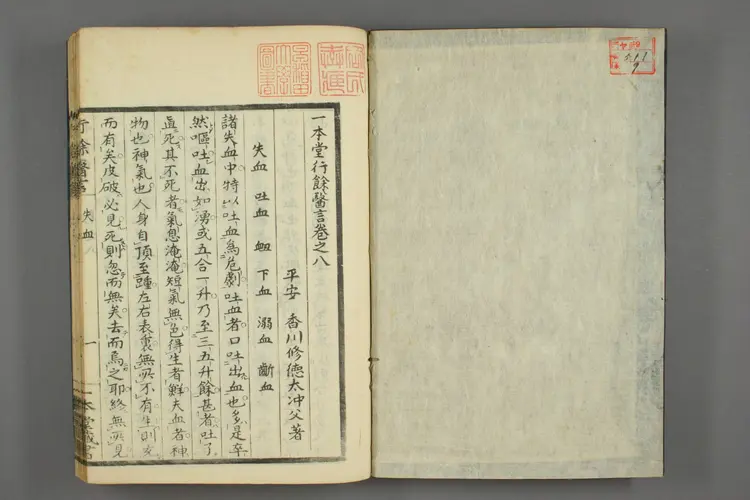 一本堂行餘醫言卷之八
平安 香川修德太冲父著
失血 吐血 衂 下血 溺血 齗血
諸失血中特以吐血爲危劇吐血者口吐出血也多是卒
然嘔吐血出如湧或五合一升乃至三五升餘甚者吐了
直死其不死者氣息淹淹短氣無色得生者鮮夫血者神
物也神氣也人身自頂至踵左右表裏無所不有生則
而有矣皮破必見死則忽而無矣去而焉之耶終無所見
行餘醫言
失血
一
一本堂藏